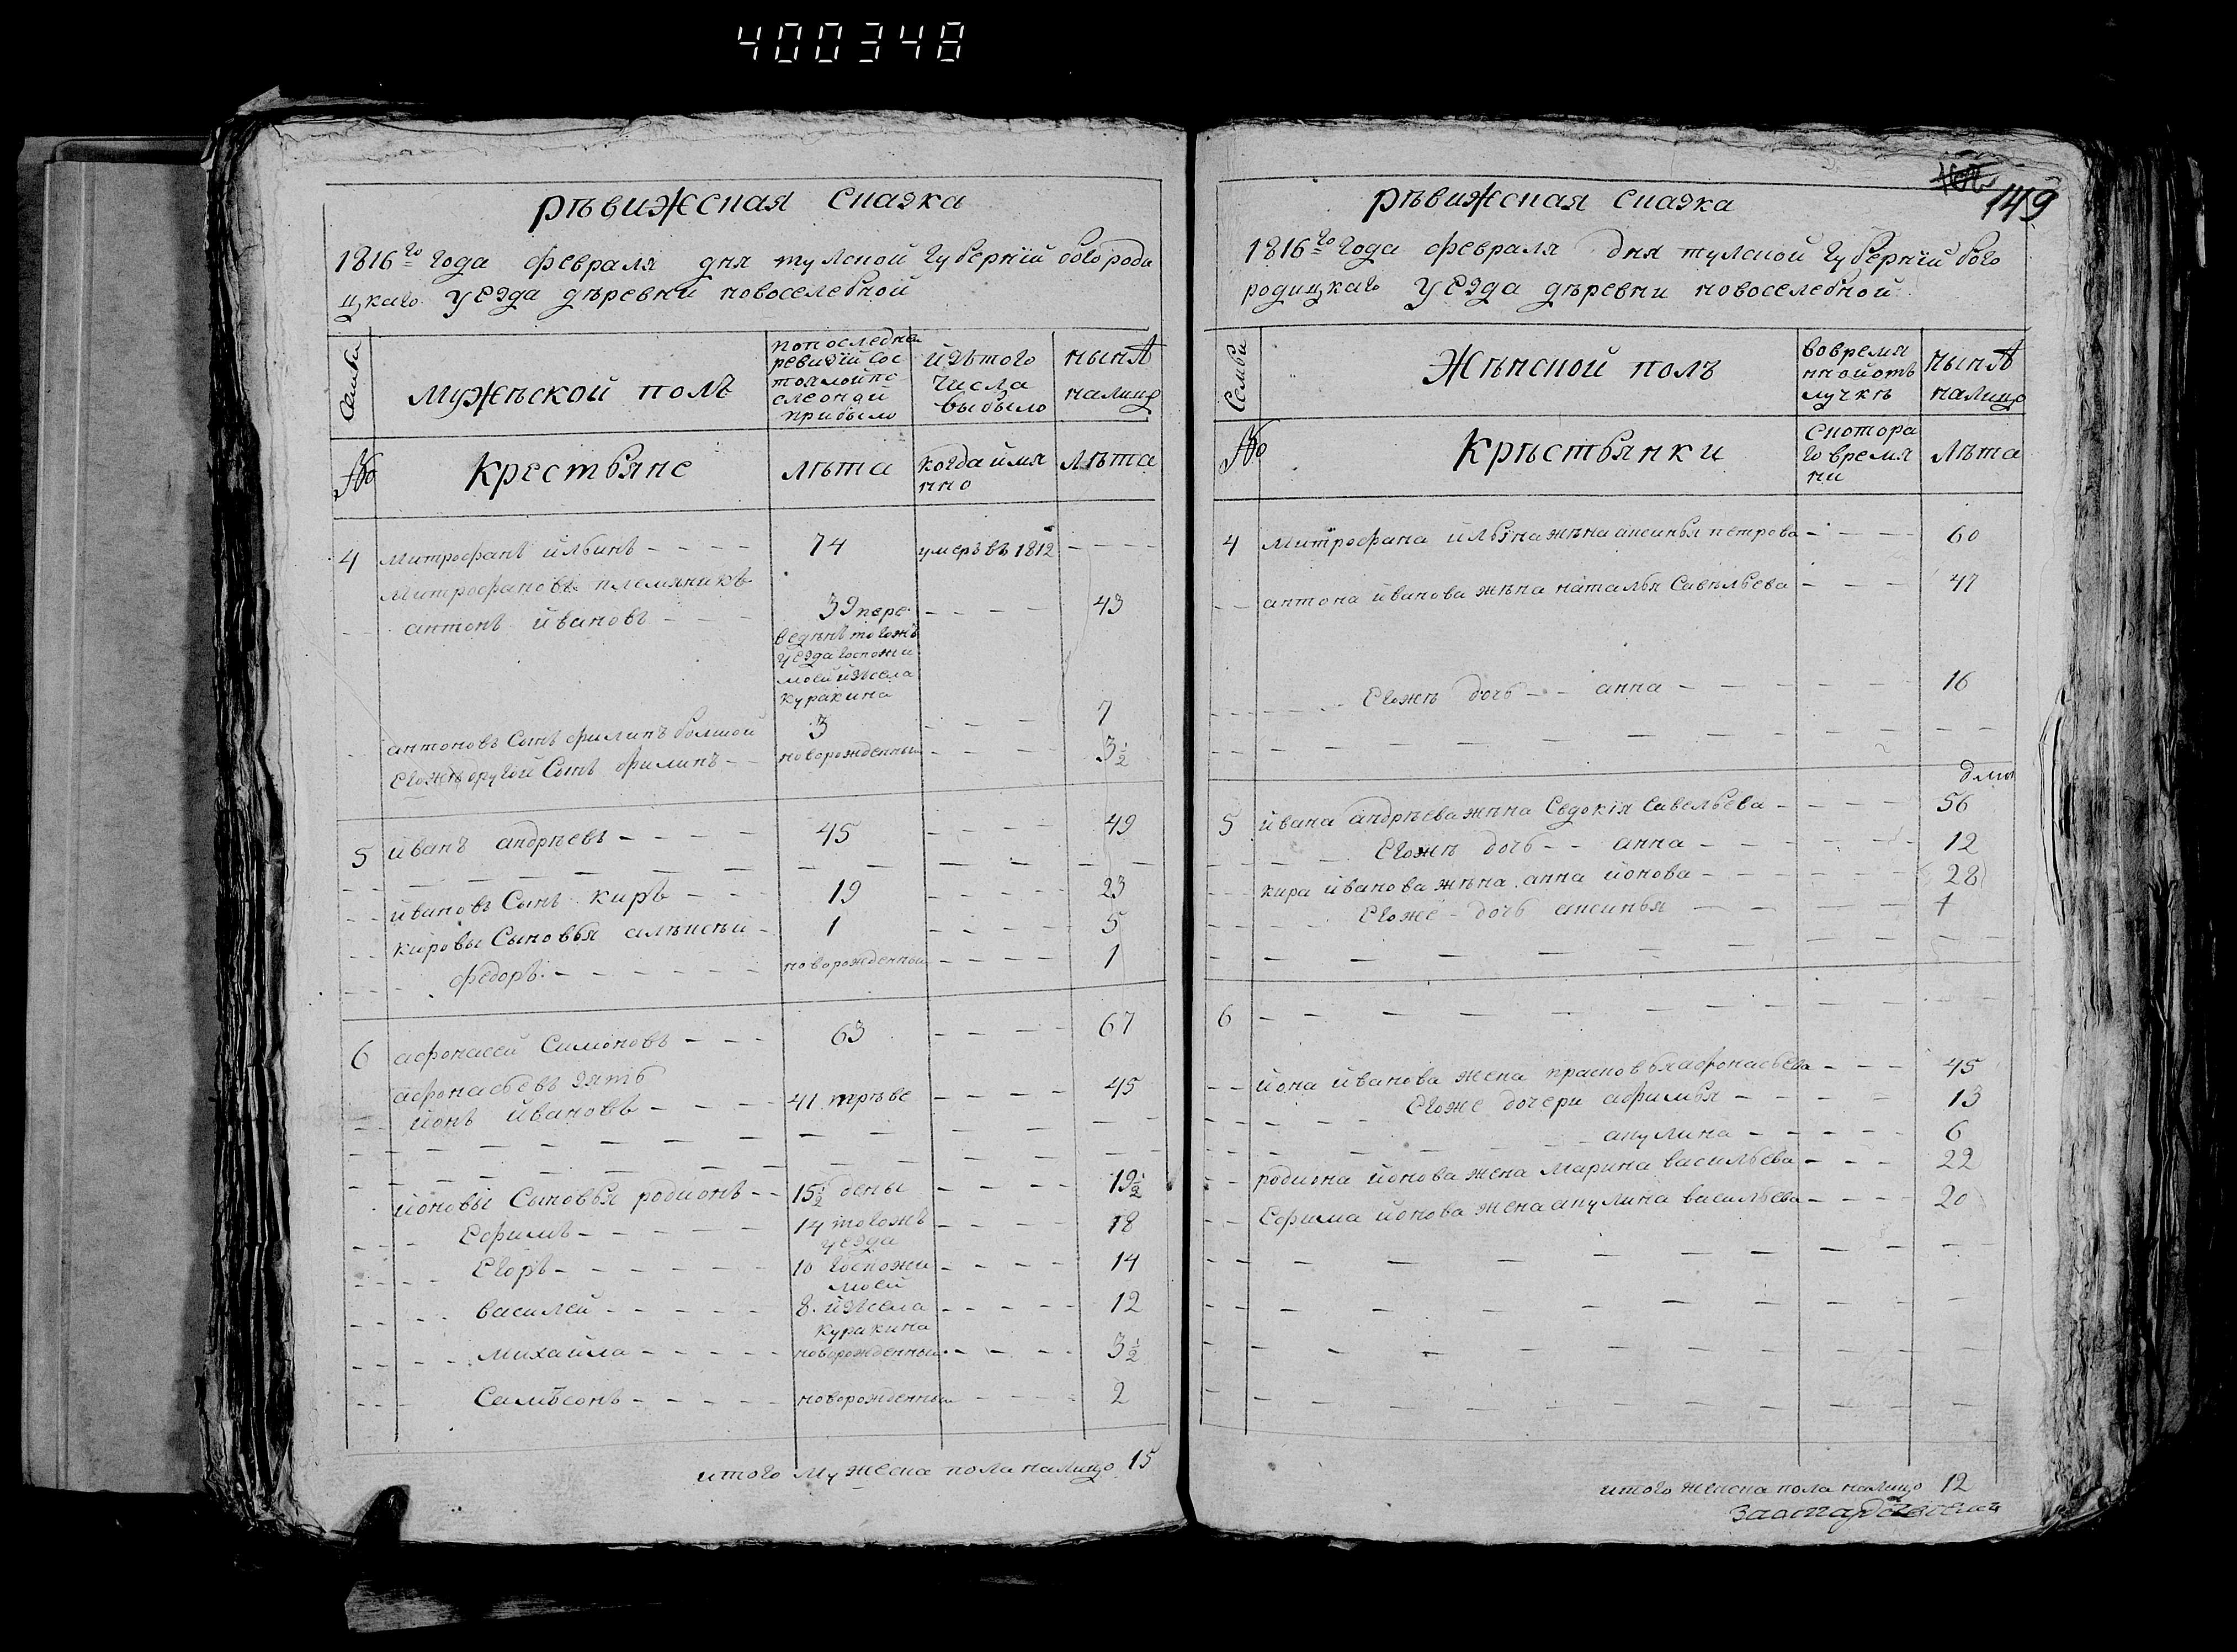 400348
рѣвижская сказка
1816го года февраля дня тулской губернїй богороди
цкаго уезда дѣревни новоселебной
Семьи
мужѣской полъ
попоследне
ревизїй сос
тоялойпо
слеоной
прибыло
йзътого
числа
выбыло
нынѣ
налицо
№
крестьяне
лѣта
когдаймя
нно
лѣта
4 митрофанъ ильинъ 74 умеръвъ 1812
митрофановъ племяникъ
антонъ йвановъ 39 пере 43
веденъ тогожъ
уезда госпожи
моей изъсела
куракина
антоновъ Сынъ филипъ болшой 3 7
Егожъ другой Сынъ филипъ новорожденный 3 1/2
5 йванъ андрѣевъ 45 49
йвановъ Сынъ киръ 19 23
кировы Сыновья алѣксѣй 1 5
федоръ новорожденный 1
6 афонасей Симоновъ 63 67
афонасьевъ зять
йонъ йвановъ 41 перѣве 45
йоновы Сыновья родионъ 15 1/2 дены 19 1/2
Ефимъ 14 тогожъ 18
уезда
Егоръ 10 госпожи 14
моей
василей 8 йзъсела 12
куракина
михайла новорожденный 3 1/2
Самъсонъ новорожденный 2
итого мужеска пола налицо 15
149
рѣвижская сказка
1816го года февраля дня тулской губернїй бого
родицкаго уезда дѣревни новоселебной
Семьи
Жѣнской полъ
вовремя
нной отъ
лучкѣ
нынѣ
налицо
№
Крѣстьянки
Скотора
го время
ни
лѣта
4 митрофана ильина жѣна аксинья петрова 60
антона йванова жѣна наталья Савѣльева 47
Егожѣ дочь анна 16
5 йвана андрѣева жѣна Евдокїя Савельева 56
Егожѣ дочь анна 12
кира йванова жѣна анна йонова 28
Егоже дочь аксинья 1
6
йона йванова жена прасковья афонасьева 45
Егоже дочери афимья 13
акулина 6
родиона йонова жена марина васильева 22
Ефима йонова жена акулина васильева 20
итого женска пола налицо 12